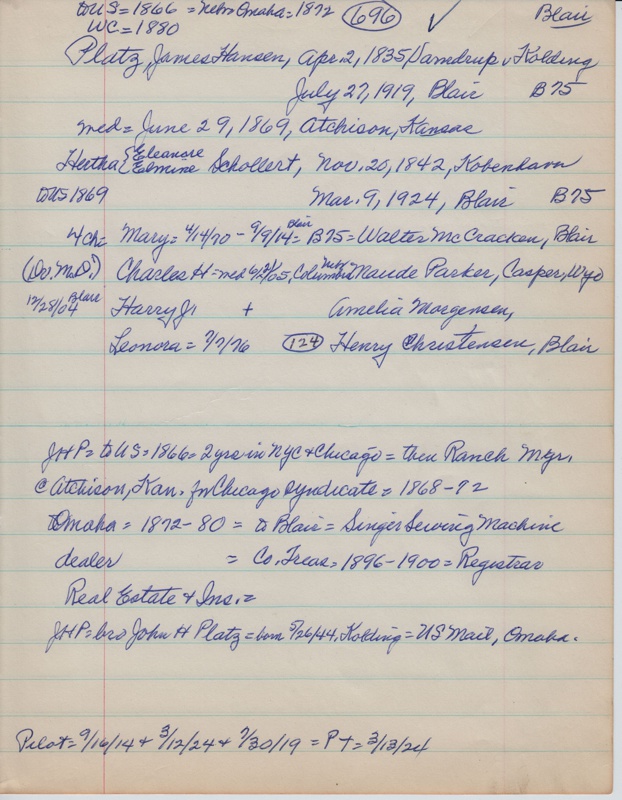 to US = 1866 = Nebr Omaha = 1872 (696) ✓ Blair
WC = 1880
Platz, James Hansen, Apr. 2, 1835, Vamdrup v Kolding
July 27, 1919, Blair B75
med = June 29, 1869, Atchison, Kansas
Hertha {Eleanore Elmine Schollert, Nov. 20, 1842, Kobenhavn
to US 1869 Mar. 9, 1924, Blair B75
4 ch = Mary = 4/14/70 - 9/9/14 = Blair B75 = Walter McCracken, Blair
(Dr. M.D.) Charles H = med Columbus Nebr Maude Parker, Casper, Wyo
12/28/04 Blair Harry J. + Amelia Morgensen,
Leonora = 7/7/76 (124) Henry Christensen, Blair
JHP = to US = 1866 = 2 yrs in NYC + Chicago = then Ranch Mgr.
@ Atchison, Kan. for Chicago syndicate = 1868-72
to Omaha = 1872-80 = to Blair = Singer Sewing Machine
dealer = Co. Treas. = 1896-1900 = Registrar
Real Estate & Ins. =
JHP = bro John H Platz = born 5/26/44, Kolding = US Mail, Omaha.
Pilot = 9/16/14 + 3/12/24 + 7/30/19 = P T = 3/13/24